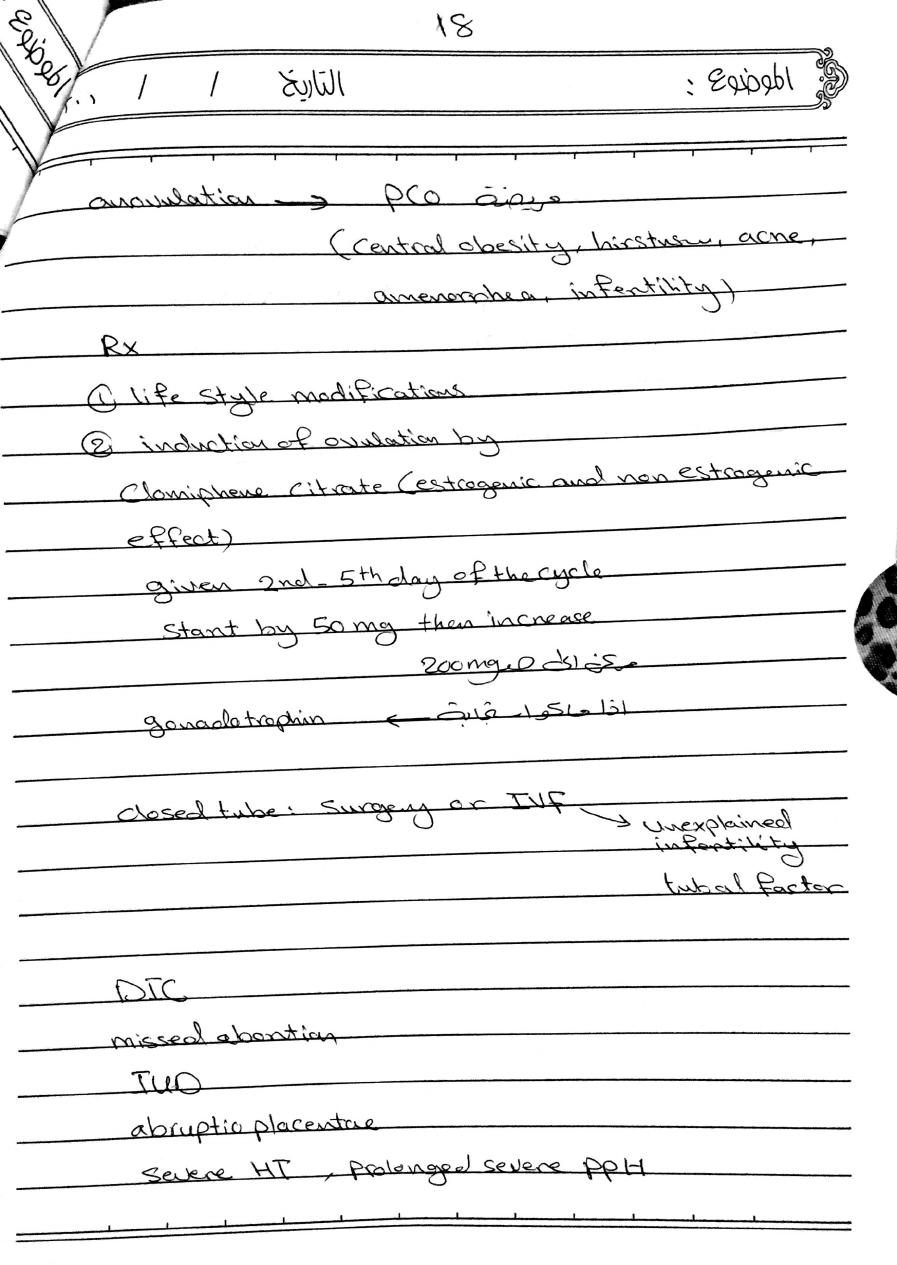 18
الموضوع :
التاريخ / / ٢٠٠
الموضوع
anovulation → PCO مريضة
(central obesity, hirstusm, acne,
amenorrhea, infertility)
Rx
① life style modifications
② induction of ovulation by
Clomiphene citrate (estrogenic and non estrogenic
effect)
given 2nd - 5th day of the cycle
start by 50 mg then increase
200mg
اذا ماكو استجابة ← gonadotrophin
closed tube: surgery or IVF → unexplained
infertility
tubal factor
DIC
missed abortion
IUD
abruptio placentae
severe HT , prolonged severe PPH